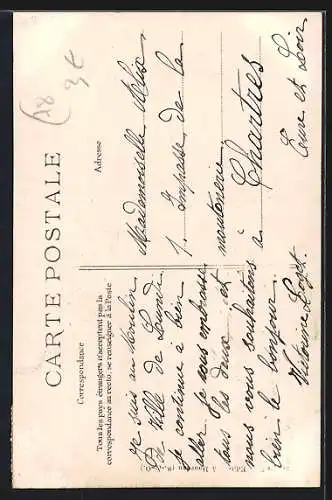 (28
3€
CARTE POSTALE
Correspondance
Adresse
Tous les pays étrangers n'acceptent pas la
correspondance au recto, se renseigner à la Poste
Je suis au Moulin
de Ville de
Je continue à bien
aller. Je vous embrasse
tous les deux et
nous vous souhaitons
bien le bonjour.
Mademoiselle Alix
1. Impasse de la
moutonnerie
à Chartres
Eure et Loir